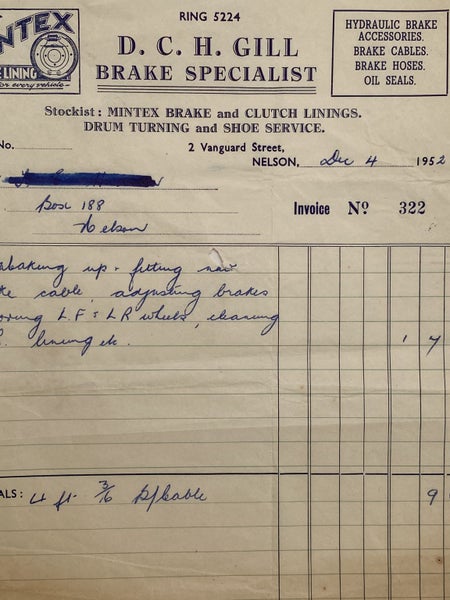 RING 5224
D. C. H. GILL
BRAKE SPECIALIST
NTEX
E-LINING
for every vehicle
HYDRAULIC BRAKE
ACCESSORIES.
BRAKE CABLES.
BRAKE HOSES.
OIL SEALS.
Stockist: MINTEX BRAKE and CLUTCH LININGS.
DRUM TURNING and SHOE SERVICE.
No.
2 Vanguard Street,
NELSON, Dec 4 1952
Box 188
Nelson
Invoice No 322
up. fitting new
cable, adjusting brakes
L F : L R wheels, cleaning
lining etc. 1 7
ALS: 4 ft 3/16 B/cable 9